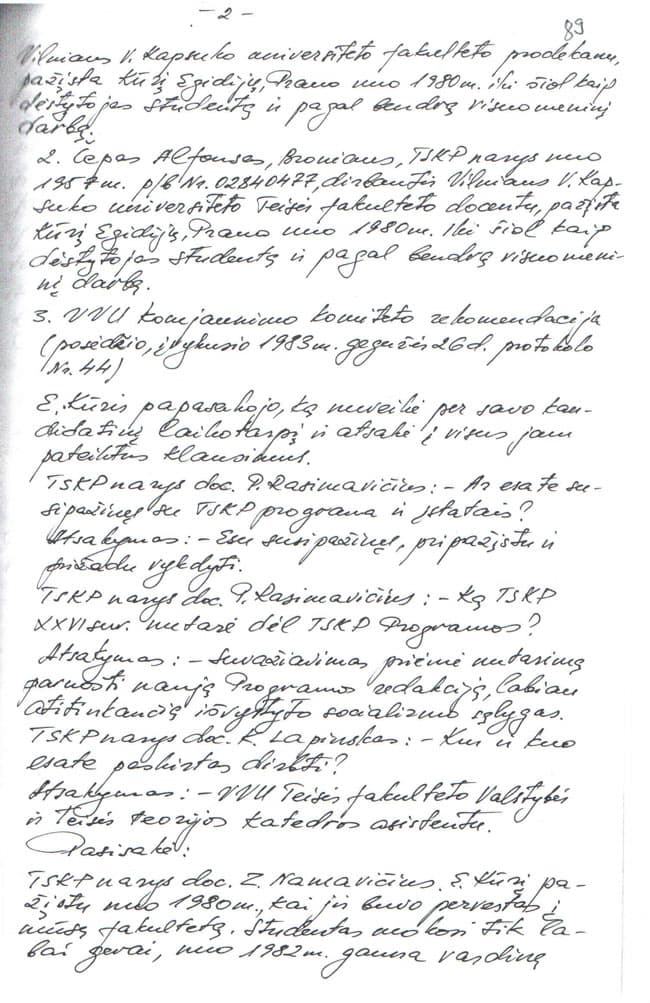 - 2 -
89
Vilniaus V. Kapsuko universiteto fakulteto prodekanu,
pažįsta Kūrį Egidijų, Prano nuo 1980 m. iki šiol kaip
dėstytojas studentą ir pagal bendrą visuomeninį
darbą.
2. Čepas Alfonsas, Broniaus, TSKP narys nuo
1957 m. p/b Nr. 02840477, dirbantis Vilniaus V. Kap-
suko universiteto Teisės fakulteto docentu, pažįsta
Kūrį Egidijų, Prano nuo 1980 m. iki šiol kaip
dėstytojas studentą ir pagal bendrą visuomeni-
nį darbą.
3. VVU komjaunimo komiteto rekomendacija
(posėdžio, įvykusio 1983 m. gegužės 26 d. protokolo
Nr. 44)
E. Kūris papasakojo, ką nuveikė per savo kan-
didatinį laikotarpį ir atsakė į visus jam
pateiktus klausimus.
TSKP narys doc. P. Rasimavičius: - Ar esate su-
sipažinęs su TSKP programa ir įstatais?
Atsakymas: - Esu susipažinęs, pripažįstu ir
prižadu vykdyti.
TSKP narys doc. P. Rasimavičius: - Ką TSKP
XXVI suv. nutarė dėl TSKP Programos?
Atsakymas: - Suvažiavimas priėmė nutarimą
paruošti naują Programos redakciją, labiau
atitinkančią išvystyto socializmo sąlygas.
TSKP narys doc. K. Lapinskas: - Kur ir kuo
esate paskirtas dirbti?
Atsakymas: - VVU Teisės fakulteto Valstybės
ir Teisės teorijos katedros asistentu.
Pasisakė:
TSKP narys doc. Z. Namavičius. E. Kūrį pa-
žįstu nuo 1980 m., kai jis buvo pervestas į
mūsų fakultetą. Studentas mokosi tik la-
bai gerai, nuo 1982 m. gauna vardinę